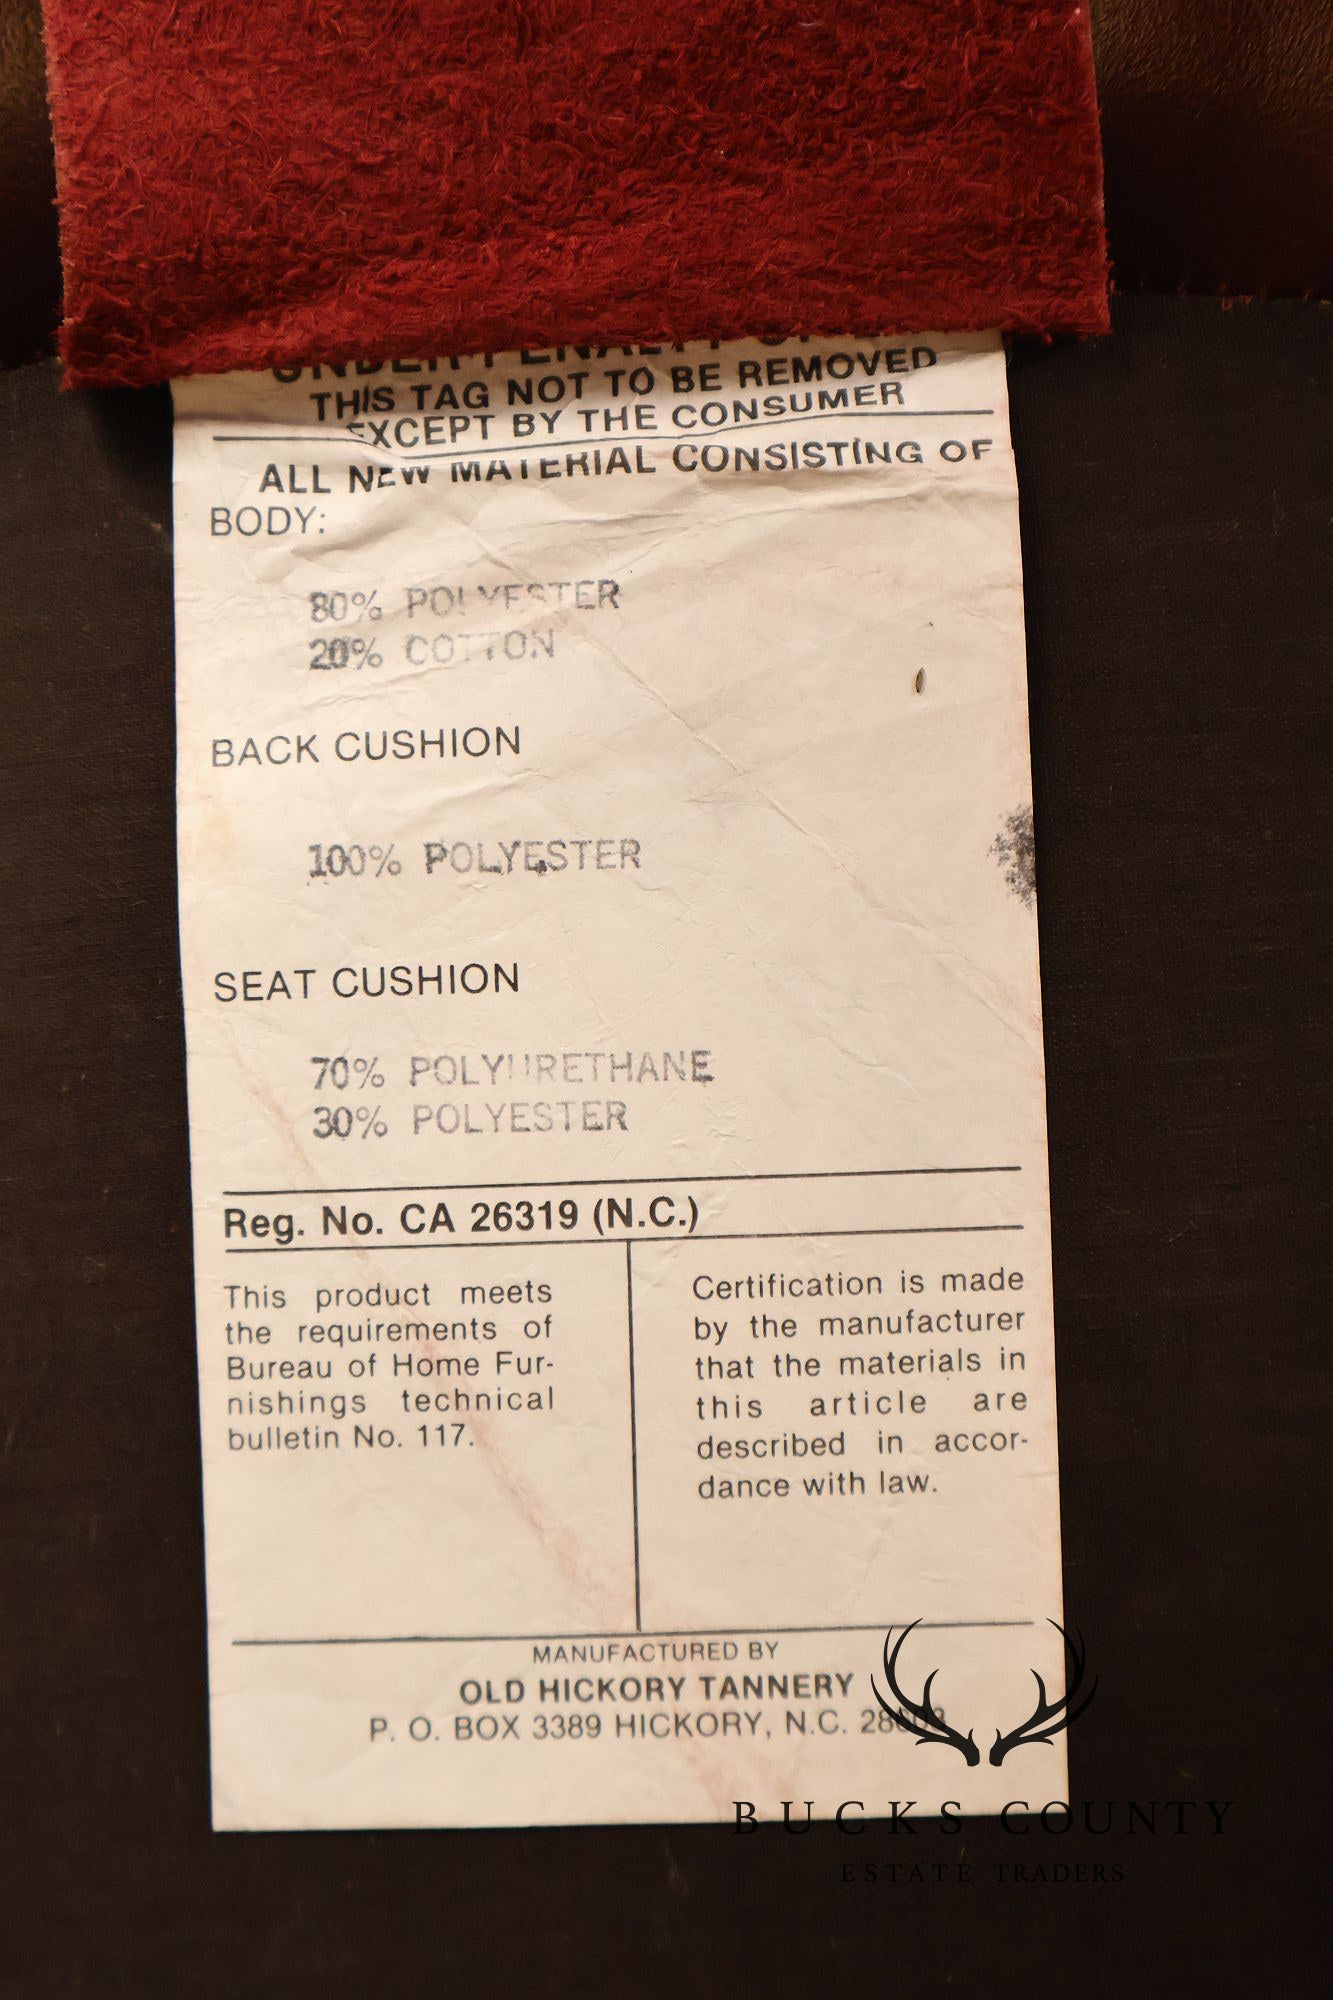 UNDER PENALTY OF
THIS TAG NOT TO BE REMOVED
EXCEPT BY THE CONSUMER
ALL NEW MATERIAL CONSISTING OF
BODY:
80% POLYESTER
20% COTTON
BACK CUSHION
100% POLYESTER
SEAT CUSHION
70% POLYURETHANE
30% POLYESTER
Reg. No. CA 26319 (N.C.)
This product meets
the requirements of
Bureau of Home Fur-
nishings technical
bulletin No. 117.
Certification is made
by the manufacturer
that the materials in
this article are
described in accor-
dance with law.
MANUFACTURED BY
OLD HICKORY TANNERY
P. O. BOX 3389 HICKORY, N.C. 28603
BUCKS COUNTY
ESTATE TRADERS